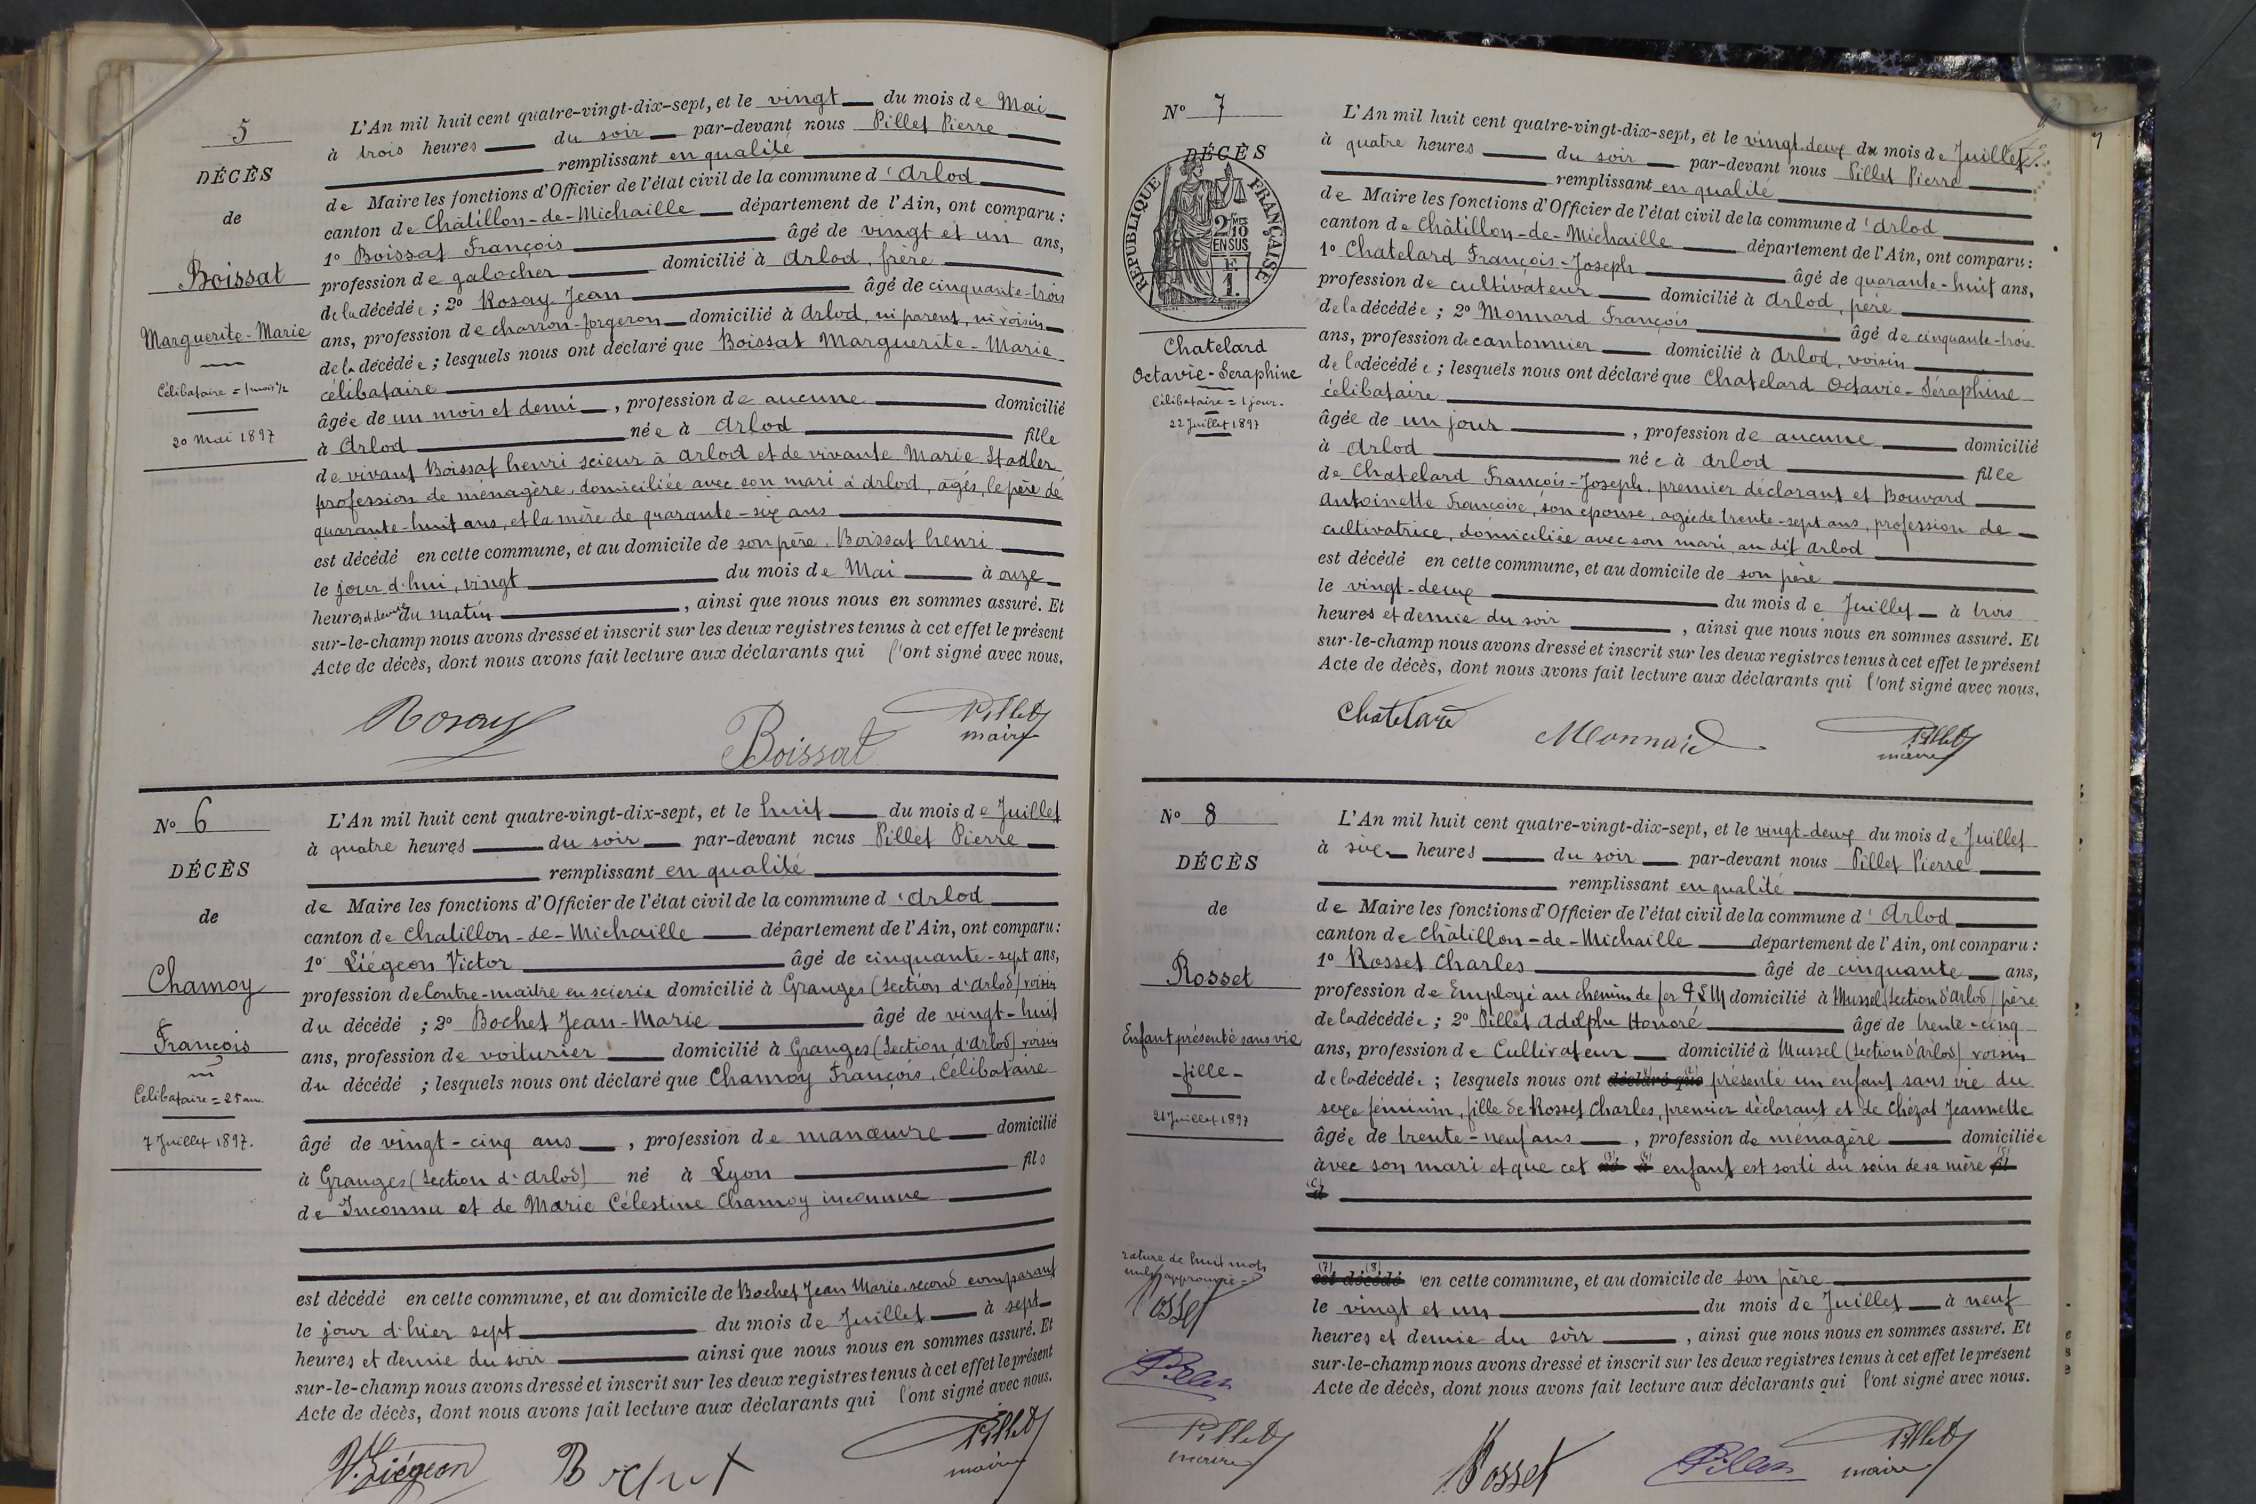 5
DÉCÈS
de
Boissat
Marguerite-Marie
Célibataire = 1 mois ½
20 Mai 1897
L'An mil huit cent quatre-vingt-dix-sept, et le vingt du mois de Mai
à trois heures du soir par-devant nous Pillet Pierre
remplissant en qualité
de Maire les fonctions d'Officier de l'état civil de la commune d'Arlod
canton de Châtillon-de-Michaille département de l'Ain, ont comparu :
1° Boissat François âgé de vingt et un ans,
profession de galocher domicilié à Arlod, frère
de la décédée ; 2° Rosay Jean âgé de cinquante-trois
ans, profession de charron-forgeron domicilié à Arlod, ni parent, ni voisin
de la décédée ; lesquels nous ont déclaré que Boissat Marguerite-Marie
célibataire
âgée de un mois et demi, profession de aucune domicilié
à Arlod née à Arlod fille
de vivant Boissat henri scieur à Arlod et de vivante Marie Stadler
profession de ménagère, domiciliée avec son mari à Arlod, âgés, le père de
quarante-huit ans, et la mère de quarante-six ans
est décédé en cette commune, et au domicile de son père, Boissat henri
le jour d'hui, vingt du mois de Mai à onze
heures et demie du matin, ainsi que nous nous en sommes assuré. Et
sur-le-champ nous avons dressé et inscrit sur les deux registres tenus à cet effet le présent
Acte de décès, dont nous avons fait lecture aux déclarants qui l'ont signé avec nous.
Rosay
Boissat
Pillet
maire
N° 6
DÉCÈS
de
Chamoy
François
Célibataire = 25 ans.
7 Juillet 1897.
L'An mil huit cent quatre-vingt-dix-sept, et le huit du mois de Juillet
à quatre heures du soir par-devant nous Pillet Pierre
remplissant en qualité
de Maire les fonctions d'Officier de l'état civil de la commune d'Arlod
canton de Chatillon-de-Michaille département de l'Ain, ont comparu :
1° Liégeon Victor âgé de cinquante-sept ans,
profession de Contre-maître en scierie domicilié à Granges (Section d'Arlod) voisin
du décédé ; 2° Bochet Jean-Marie âgé de vingt-huit
ans, profession de voiturier domicilié à Granges (Section d'Arlod) voisin
du décédé ; lesquels nous ont déclaré que Chamoy François, Célibataire
âgé de vingt-cinq ans, profession de manœuvre domicilié
à Granges (Section d'Arlod) né à Lyon fils
de Inconnu et de Marie Célestine Chamoy inconnue
est décédé en cette commune, et au domicile de Bochet Jean Marie, second comparant
le jour d'hier sept du mois de Juillet à sept
heures et demie du soir ainsi que nous nous en sommes assuré. Et
sur-le-champ nous avons dressé et inscrit sur les deux registres tenus à cet effet le présent
Acte de décès, dont nous avons fait lecture aux déclarants qui l'ont signé avec nous.
V. Liégeon
Bochet
Pillet
maire
N° 7
DÉCÈS
RÉPUBLIQUE FRANÇAISE
2/10
EN SUS
F.
1.
Chatelard
Octavie-Seraphine
Célibataire = 1 jour.
22 Juillet 1897
L'An mil huit cent quatre-vingt-dix-sept, et le vingt-deux du mois de Juillet
à quatre heures du soir par-devant nous Pillet Pierre
remplissant en qualité
de Maire les fonctions d'Officier de l'état civil de la commune d'Arlod
canton de Châtillon-de-Michaille département de l'Ain, ont comparu :
1° Chatelard François-Joseph âgé de quarante-huit ans,
profession de cultivateur domicilié à Arlod, père
de la décédée ; 2° Monnard François âgé de cinquante-trois
ans, profession de cantonnier domicilié à Arlod, voisin
de la décédée ; lesquels nous ont déclaré que Chatelard Octavie-Séraphine
célibataire
âgée de un jour, profession de aucune domicilié
à Arlod née à Arlod fille
de Chatelard François-Joseph, premier déclarant et Bouvard
Antoinette Françoise, son épouse, agée de trente-sept ans, profession de
cultivatrice, domiciliée avec son mari, au dit Arlod
est décédé en cette commune, et au domicile de son père
le vingt-deux du mois de Juillet à trois
heures et demie du soir, ainsi que nous nous en sommes assuré. Et
sur-le-champ nous avons dressé et inscrit sur les deux registres tenus à cet effet le présent
Acte de décès, dont nous avons fait lecture aux déclarants qui l'ont signé avec nous.
Chatelard
Monnard
Pillet
maire
N° 8
DÉCÈS
de
Rosset
Enfant présenté sans vie
-fille-
21 Juillet 1897
rature de huit mots
nuls approuvée
Rosset
Pillet
maire
L'An mil huit cent quatre-vingt-dix-sept, et le vingt-deux du mois de Juillet
à six heures du soir par-devant nous Pillet Pierre
remplissant en qualité
de Maire les fonctions d'Officier de l'état civil de la commune d'Arlod
canton de Châtillon-de-Michaille département de l'Ain, ont comparu :
1° Rosset Charles âgé de cinquante ans,
profession de Employé au chemin de fer P L M domicilié à Mussel (Section d'Arlod) père
de la décédée ; 2° Pillet Adolphe Honoré âgé de trente-cinq
ans, profession de Cultivateur domicilié à Mussel (Section d'Arlod) voisin
de la décédée ; lesquels nous ont déclaré que présenté un enfant sans vie du
sexe féminin, fille de Rosset Charles, premier déclarant et de Chézat Jeannette
âgée de trente-neuf ans, profession de ménagère domiciliée
avec son mari et que cet enfant est sorti du sein de sa mère
est décédé en cette commune, et au domicile de son père
le vingt et un du mois de Juillet à neuf
heures et demie du soir, ainsi que nous nous en sommes assuré. Et
sur-le-champ nous avons dressé et inscrit sur les deux registres tenus à cet effet le présent
Acte de décès, dont nous avons fait lecture aux déclarants qui l'ont signé avec nous.
Rosset
Pillet
Pillet
maire